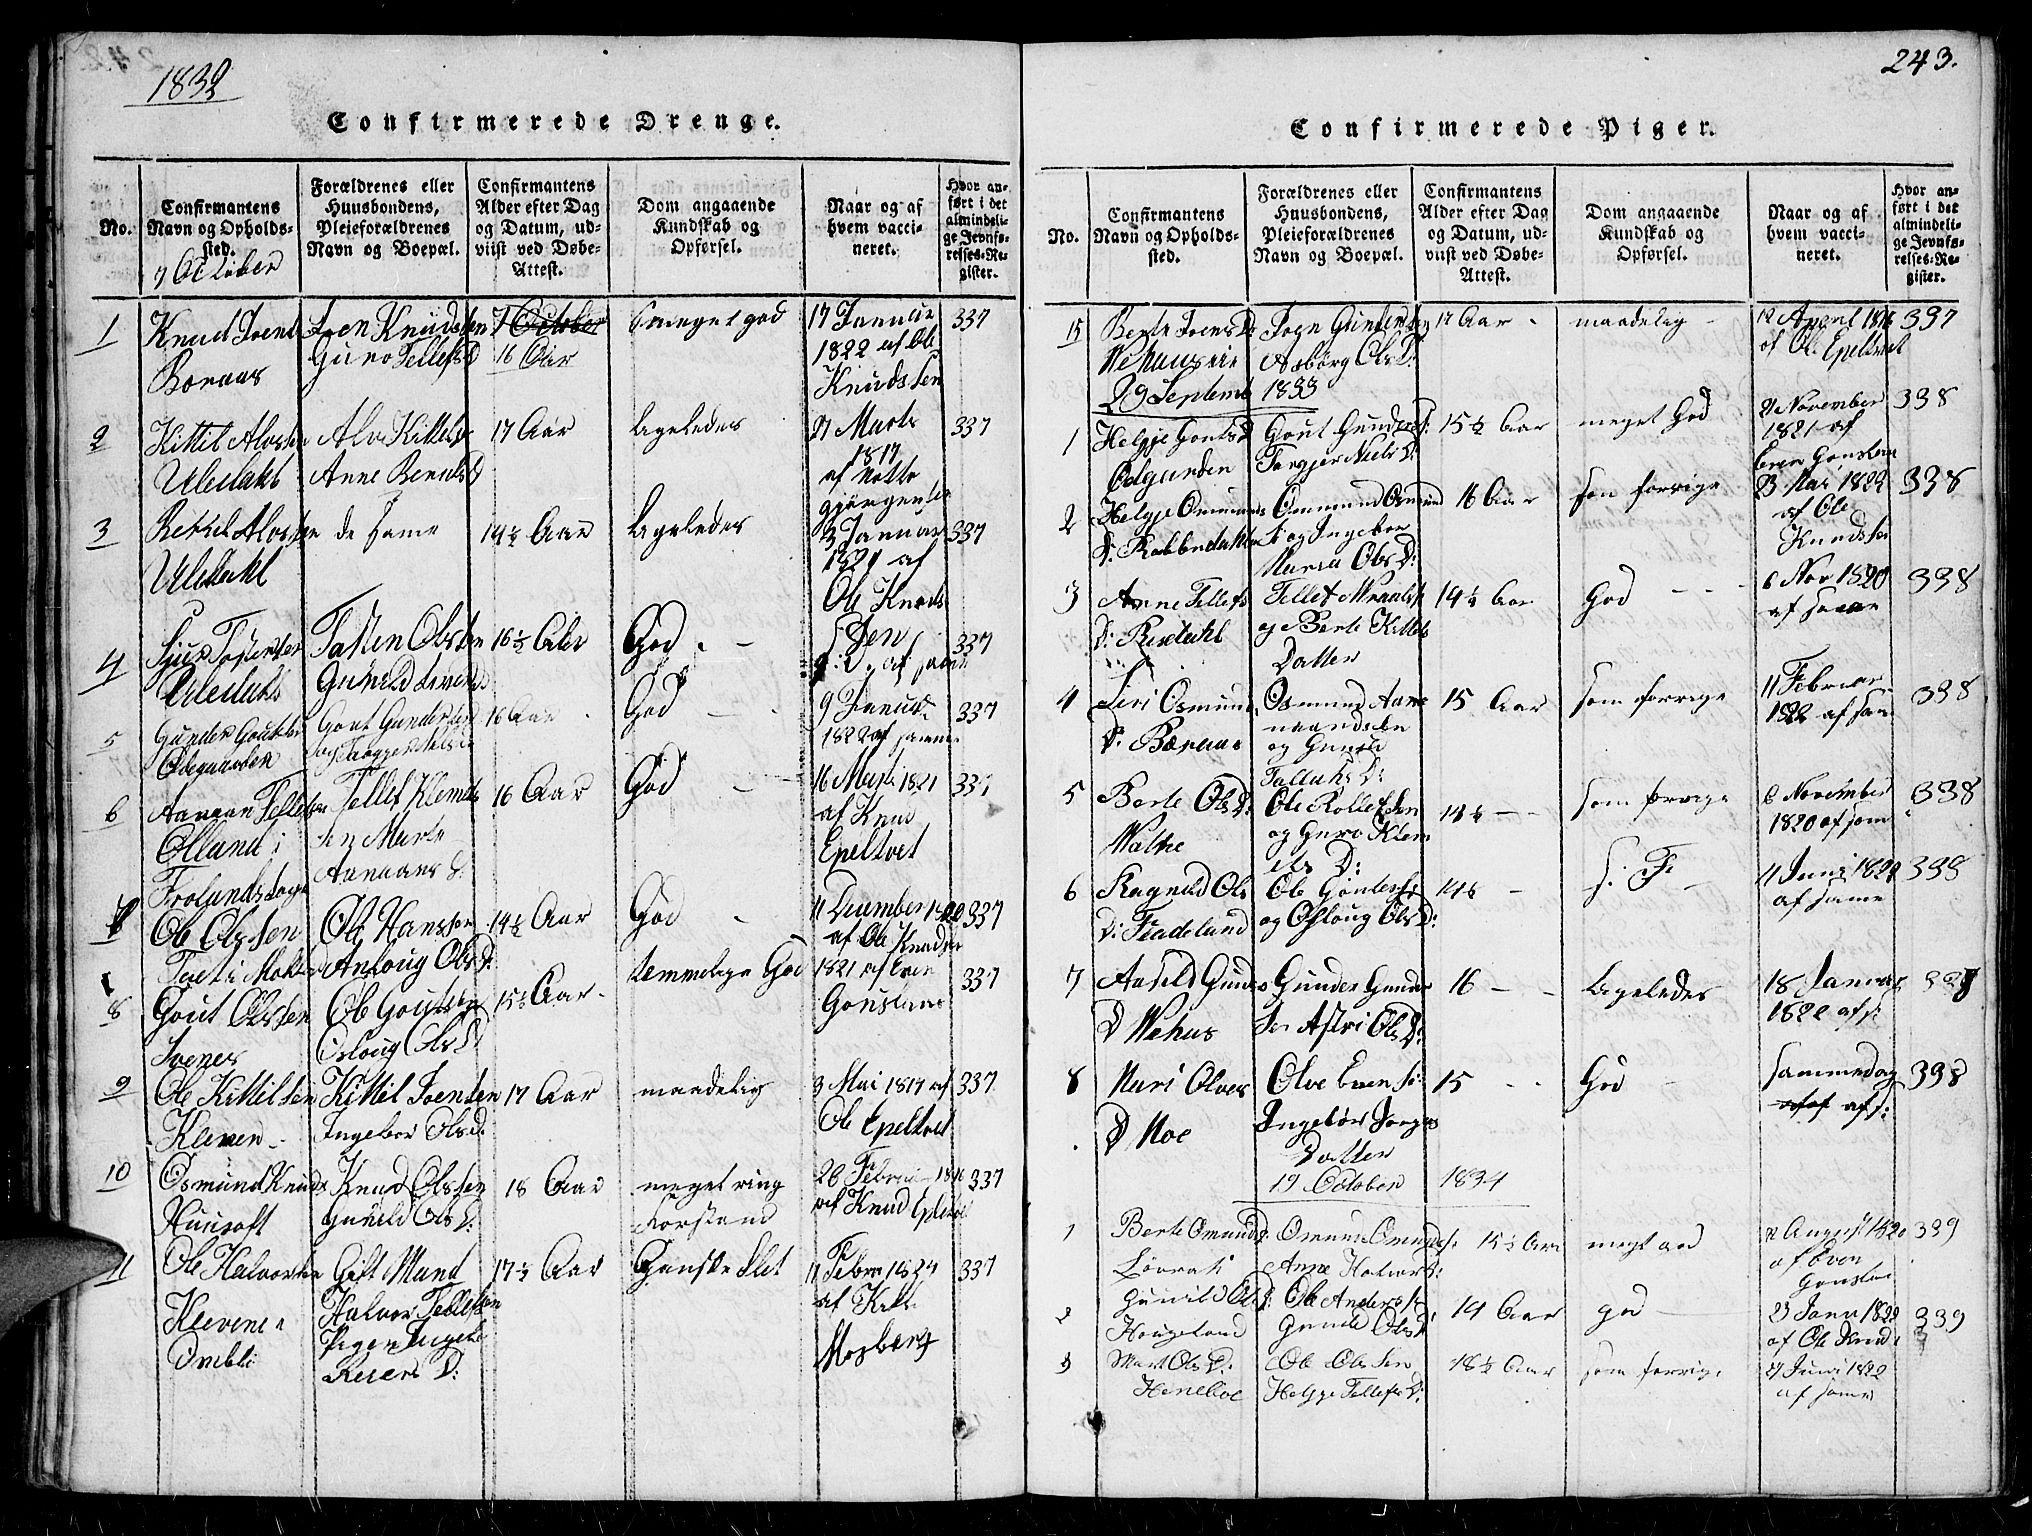 1832
Confirmerede Drenge.
No.
Confirmantens
Navn og Opholds-
sted.
7 October
Forældrenes eller
Huusbondens,
Pleieforældrenes
Navn og Boepæl.
Confirmantens
Alder efter Dag
og Datum, ud-
viist ved Døbe-
Attest.
Dom angaaende
Kundskab og
Opførsel.
Naar og af
hvem vacci-
neret.
Hvor an-
ført i det
almindeli-
ge Jevnfø-
relses-Re-
gister.
1
Knud Joens
Boraas
Joen Knudssen
Guro Tellefs D
16 Aar
meget god
17 Januar
1822 af Ole
Knudssen
337
2
Kittil Alvssen
Uledahl
Alv Kittels
Anne Berulfs D
17 Aar
ligeledes
27 Marts
1817
af
337
3
Alvssen
Uledahl
de samme
14½ Aar
ligeledes
3 Januar
1821 af
Ole Knuds
sen
337
4
Uledahls
Tosten Olssen
Gunild
16½ Aar
God
af samme
337
5
Gunder Goutss
Ødegaarden
Gout Gundersen
og Torgjer Niels
16 Aar
God
9 Januar
1822 af samme
337
6
Aanaan Tellefsen
Ølland i
Frolands Sogn
Tellef Klemets
sen Marte
Aanaans D:
16 Aar
God
16 Marts 1821
af Knud
Epeltvet
337
7
Ole Olssen
Tveit i
Ole Hanssen
Anloug Ols D:
14½ Aar
God
11 December 1820
af Ole Knudsen
337
8
Gout Olssen
Ivenes
Ole Goutsen
Osloug Ols D
15½ Aar
temmelige God
1821 af Even
Gonsleae
337
9
Ole Kittilsen
Kleven
Kittil Joensen
Ingebor Ols D:
17 Aar
maadelig
3 Mai 1817 af
Ole Epeltvet
337
10
Osmund Knuds
Knud Olssen
Gunild Ols D:
18 Aar
meget ring
Forstand
26 Februar 1816
af Knud Epletvet
337
11
Ole Halvorsen
Klevene i
Omlie
Gift Mand
Halvor Tellefsen
Pigen Ingeb.
Reiers D:
17½ Aar
Ganske Slet
11 Febru 1824
af
Mosberg
337
243.
Confirmerede Piger.
No.
Confirmantens
Navn og Opholds-
sted.
Forældrenes eller
Huusbondens,
Pleieforældrenes
Navn og Boepæl.
Confirmantens
Alder efter Dag
og Datum, ud-
viist ved Døbe-
Attest.
Dom angaaende
Kundskab og
Opførsel.
Naar og af
hvem vacci-
neret.
Hvor an-
ført i det
almindeli-
ge Jevnfø-
relses-Re-
gister.
15
Berte Joens D
Joen Gundersen
Asbörg Ols D:
17 Aar
maadelig
12 April 1816
af Ol. Epeltvet
337
29 Septemb 1833
1
Helgje Gouts D
Ødgarden
Gout Gunders:
Torgjer Niels D:
15½ Aar
meget God
21 November
1821 af
Even Gonsleae
338
2
Helgje Osmunds
D:
Osmund Osmund
s: og Ingebor
Maria Ols D:
16 Aar
som forrige
23 Mai 1822
af Ole
Knudsse
338
3
Anne Tellefs
D: Risdahl
Tellef
og Berte Kittels
Datter
14½ Aar
God
6 Nov 1820
af samme
338
4
Siri Osmund
D: Boraas
Osmund Aane
maandsen
og Gunild
Talluks D:
15 Aar
som forrige
11 Februar
1822 af sam
338
5
Berte Ols D:
Wathe
Ole Rollefsen
og Guro Klem
ets D:
14½
som forrige
6 November
1820 af sam
338
6
Ragnild Ols
D:
Ole Gonlefs:
og Osloug Ols D:
14½
s: F
11 Juni 1822
af samme
338
7
Aaseld Gunders
D Wehus
Gunder Gunder
sen Astri Ols D:
16
ligeledes
18 Januar
1822 af s:
338
8
Mari Olves
D Moe
Olve Evens:
Ingebör Jorgs
Datter
15
God
samme dag
af s:
338
19 October 1834
1
Berte Omunds:
Omund Omunds:
Anne Halvors D:
15½ Aar
megt god
12 August 1820
af Even
Gonslae
339
2
Gunild Ols D:
Hougeland
Ole Anders s
Gunild Ols D
14 Aar
god
23 Janu 1822
af Ole Knuds
339
3
Mari Ols D:
Heneboe
Ole Olssen
Helgje Tellefs D:
18½ Aar
som forrige
27 Juni 1822
af samme